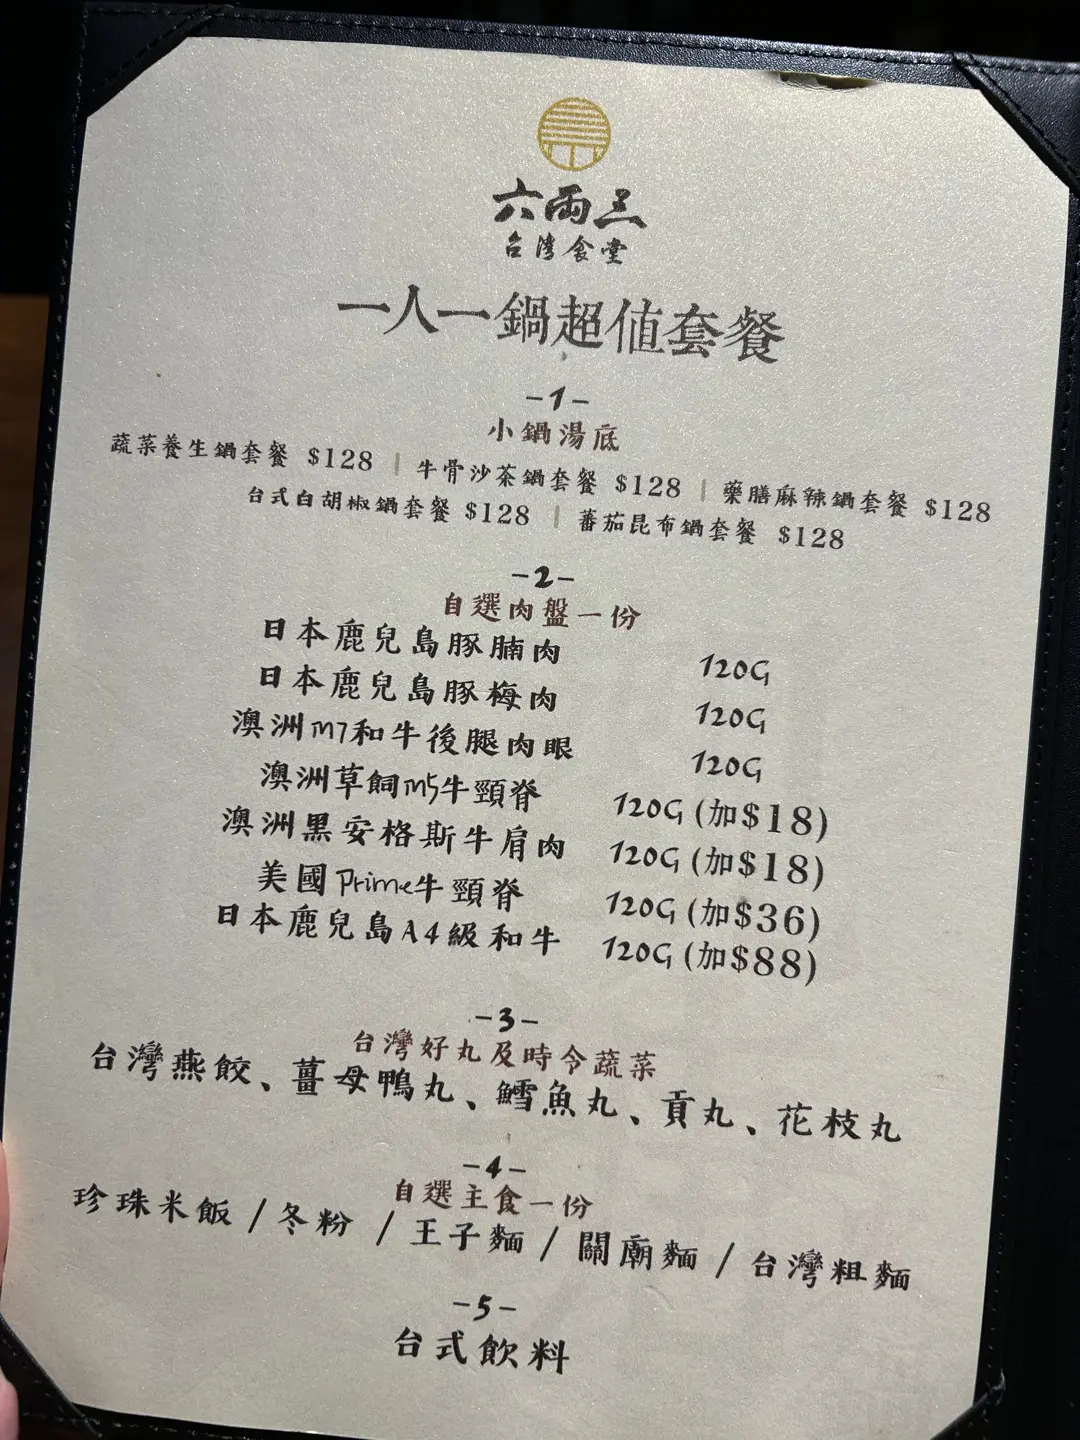 六両三
台灣食堂
一人一鍋超值套餐
-1-
小鍋湯底
蔬菜養生鍋套餐 $128 | 牛骨沙茶鍋套餐 $128 | 藥膳麻辣鍋套餐 $128
台式白胡椒鍋套餐 $128 | 蕃茄昆布鍋套餐 $128
-2-
自選肉盤一份
日本鹿兒島豚腩肉 120G
日本鹿兒島豚梅肉 120G
澳洲M7和牛後腿肉眼 120G
澳洲草飼M5牛頸脊 120G (加$18)
澳洲黑安格斯牛肩肉 120G (加$18)
美國Prime牛頸脊 120G (加$36)
日本鹿兒島A4級和牛 120G (加$88)
-3-
台灣好丸及時令蔬菜
台灣燕餃、薑母鴨丸、鱈魚丸、貢丸、花枝丸
-4-
自選主食一份
珍珠米飯 / 冬粉 / 王子麵 / 關廟麵 / 台灣粗麵
-5-
台式飲料